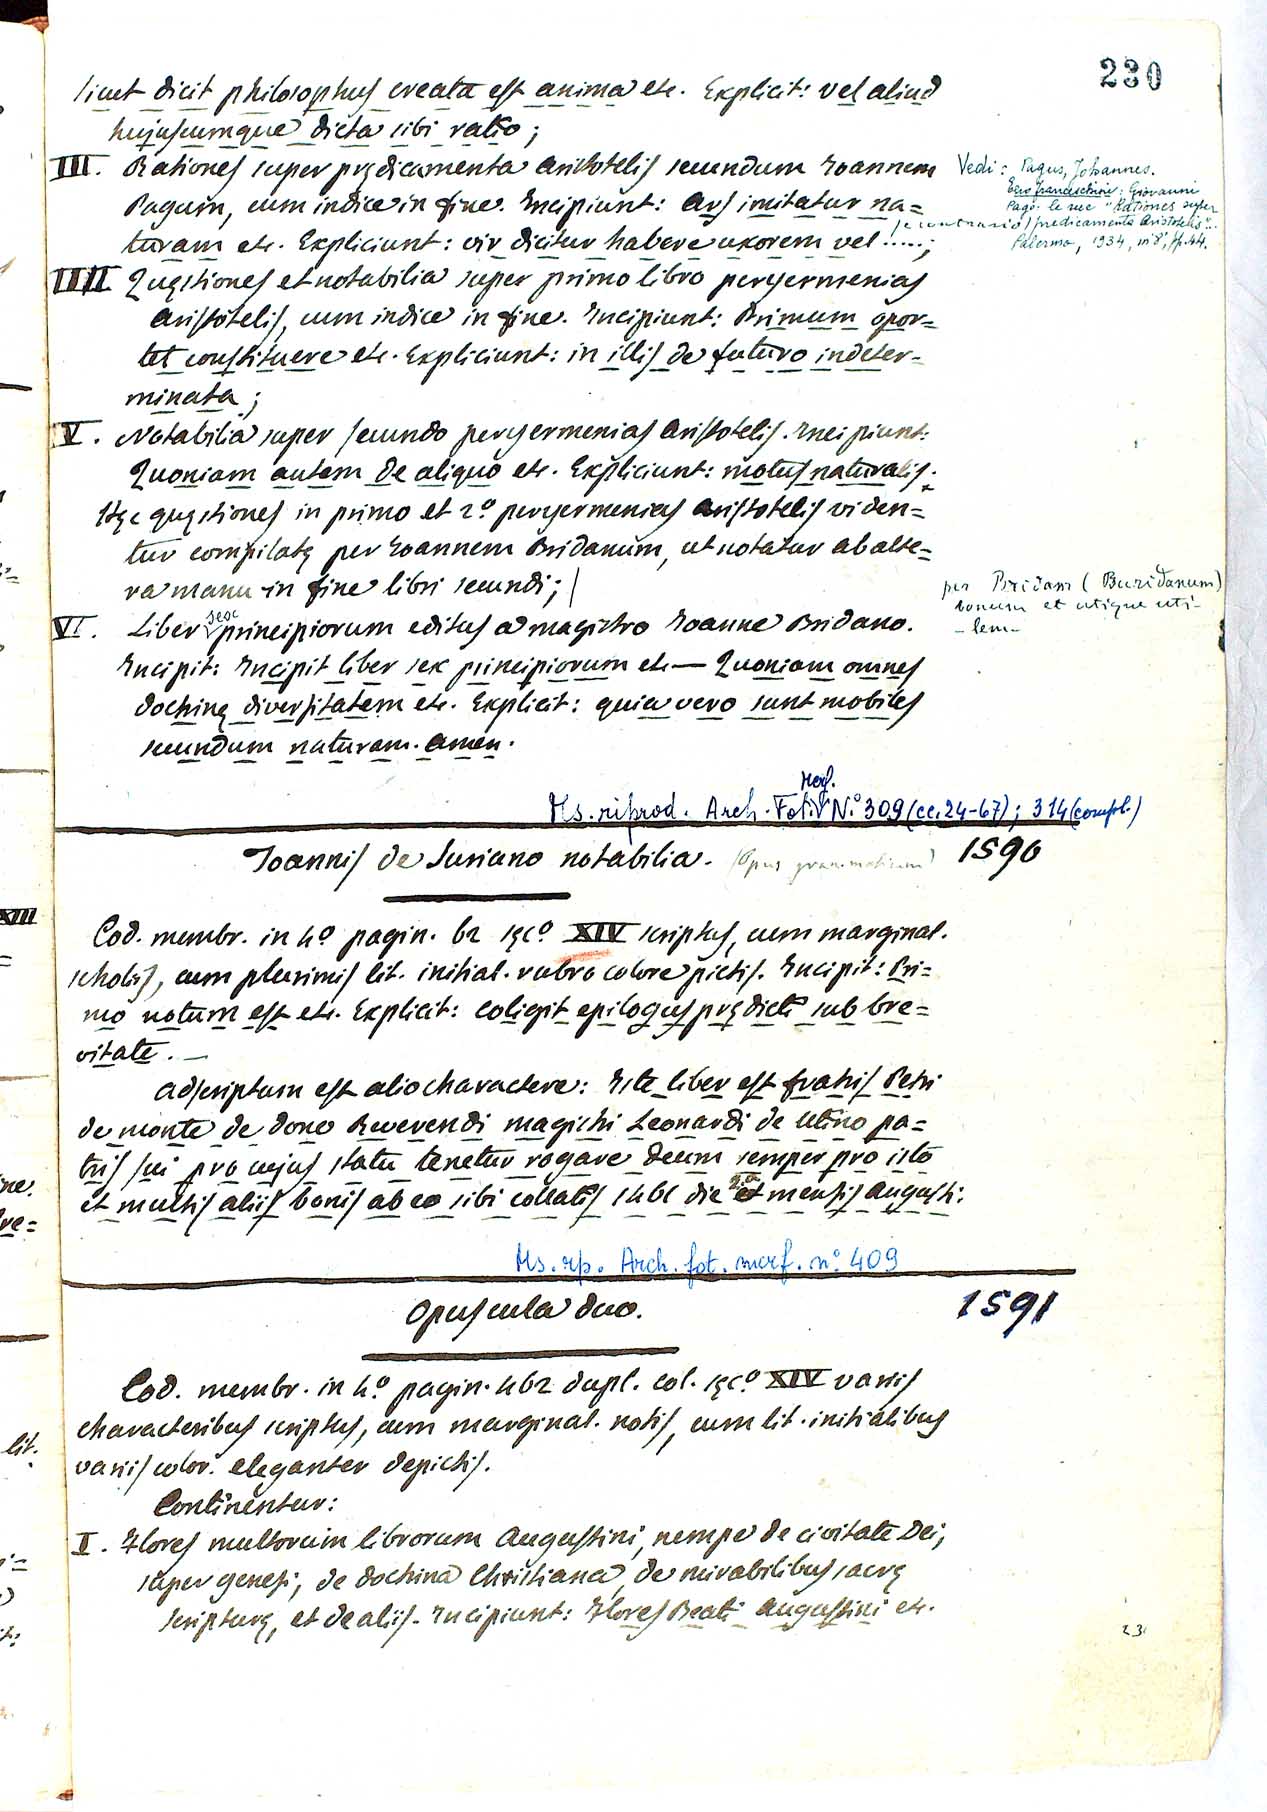 230
sicut dicit philosophus creata est anima etc. Explicit: vel aliud
hujuscumque dicta sibi ratio;
III. Rationes super prędicamenta Aristotelis secundum Joannem
Pagum, cum indice in fine. Incipiunt: Ars imitatur na=
turam etc. Expliciunt: vir dicitur habere uxorem vel .....;
e contrario/
Vedi: Pagus, Johannes.
Ezio Franceschini: Giovanni
Pago: le sue "Rationes super
predicamenta Aristotelis"..
Palermo, 1934, in 8º, pp. 44.
IIII. Quęstiones et notabilia super primo libro peryermenias
Aristotelis, cum indice in fine. Incipiunt: Primum opor=
tet constituere etc. Expliciunt: in illis de futuro indeter=
minata;
V. Notabilia super secundo peryermenias Aristotelis. Incipiunt:
Quoniam autem de aliquo etc. Expliciunt: motus naturalis.
Hęc quęstiones in primo et 2º peryermenias Aristotelis viden=
tur compilatę per Joannem Bridanum, ut notatur ab alte=
ra manu in fine libri secundi; /
per Bridam (Buridanum)
bonum et utique uti-
-lem-
VI. Liber sex principiorum editus a magistro Joanne Bridano.
Incipit: Incipit liber sex principiorum etc — Quoniam omnes
doctrinę diversitatem etc. Explicit: quia vero sunt mobiles
secundum naturam. Amen.
Ms. riprod. Arch. Fot. Merf. N.º 309 (cc. 24-67); 314 (compl.)
Joannis de Suriano notabilia. (Opus grammaticum) 1590
Cod. membr. in 4º pagin. 62 sęcº XIV scriptus, cum marginal.
scholiis, cum plurimis lit. initial. rubro colore pictis. Incipit: Pri=
mo notum est etc. Explicit: coligit epilogus prędicti sub bre=
vitate. —
Adscriptum est alio charactere: Iste liber est fratris Petri
de monte de dono Reverendi magistri Leonardi de Utino pa=
tris sui pro cujus statu tenetur rogare deum semper pro isto
et multis aliis bonis ab eo sibi collatis 1461 die mensis Augusti.
Ms. rip. Arch. fot. merf. nº 409
Opuscula duo. 1591
Cod. membr. in 4º pagin. 462 dupl. col. sęcº XIV variis
characteribus scriptus, cum marginal. notis, cum lit. initialibus
variis color. eleganter depictis.
Continentur:
I. Flores multorum librorum Augustini, nempe de civitate Dei,
super genesi, de doctrina Christiana, de mirabilibus sacrę
scripturę, et de aliis. Incipiunt: Flores Beati Augustini etc.
23